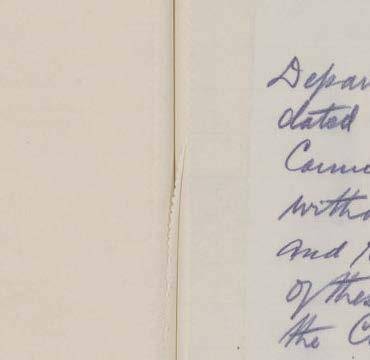 Depar
dated
Cannu
witho
and
of thes
the C